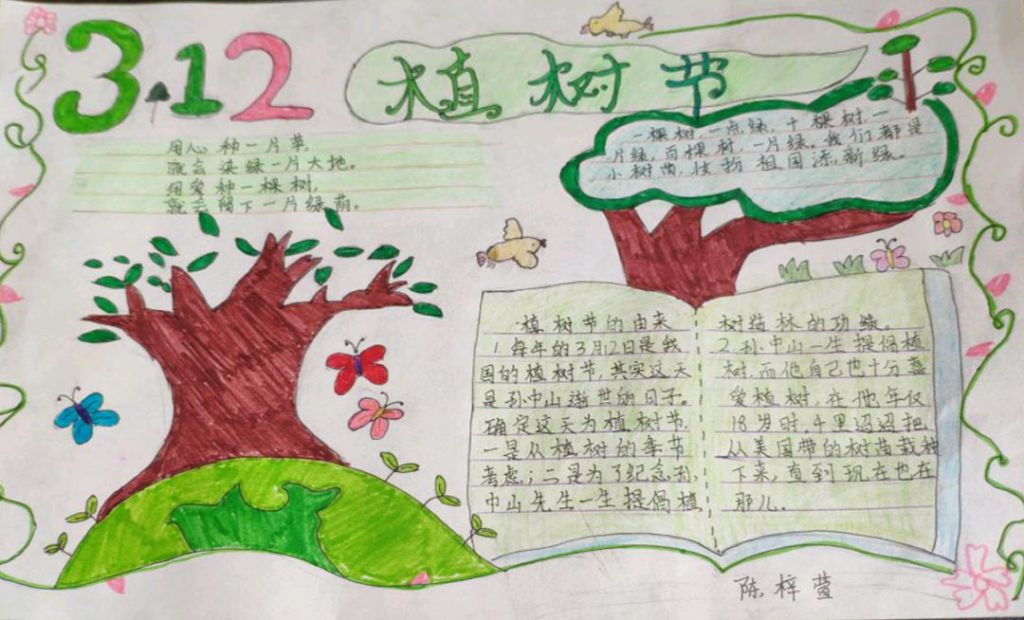 3.12
植树节
用心种一片草,
就会染绿一片大地。
用爱种一棵树,
就会留下一片绿荫。
一棵树,一点绿,十棵树,一
片绿,百棵树,一片绿。我们都是
小树苗,快为祖国添新绿。
植树节的由来
1.每年的3月12日是我
国的植树节,其实这天
是孙中山逝世的日子。
确定这天为植树节
一是从植树的季节
考虑;二是为了纪念孙
中山先生一生提倡植
树造林的功绩。
2.孙中山一生提倡植
树,而他自己也十分喜
爱植树,在他年仅
18岁时,千里迢迢把
从美国带的树苗栽种
下来,直到现在也在
那儿。
陈梓萱